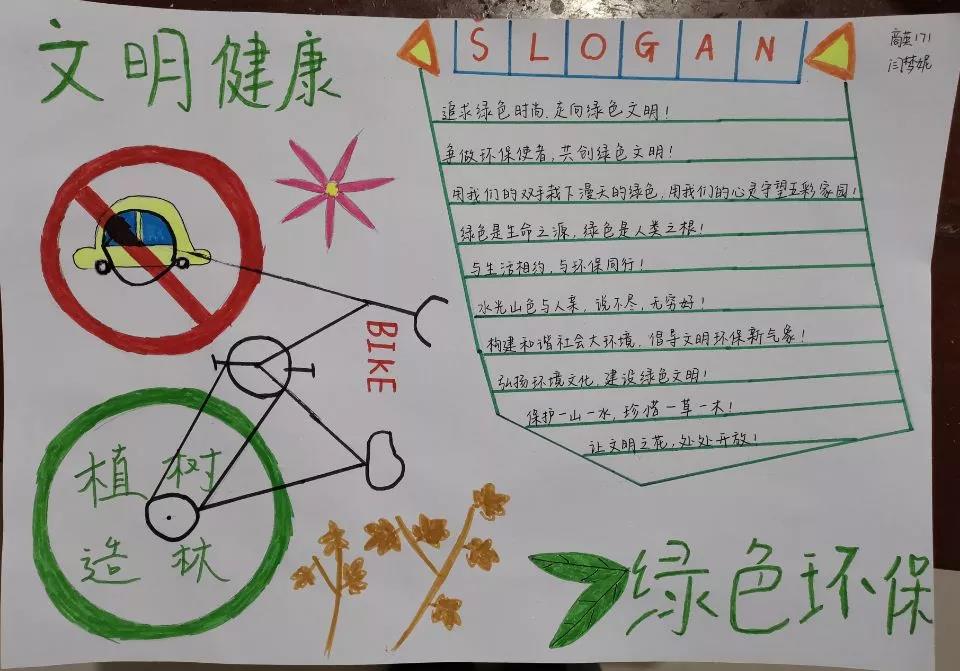 文明健康
SLOGAN
商英171
闫梦妮
追求绿色时尚,走向绿色文明!
争做环保使者,共创绿色文明!
用我们的双手栽下漫天的绿色,用我们的心灵守望五彩家园!
绿色是生命之源,绿色是人类之根!
与生活相约,与环保同行!
水光山色与人亲,说不尽,无穷好!
构建和谐社会大环境,倡导文明环保新气象!
弘扬环境文化,建设绿色文明!
保护一山一水,珍惜一草一木!
让文明之花,处处开放!
BIKE
植树
造林
绿色环保